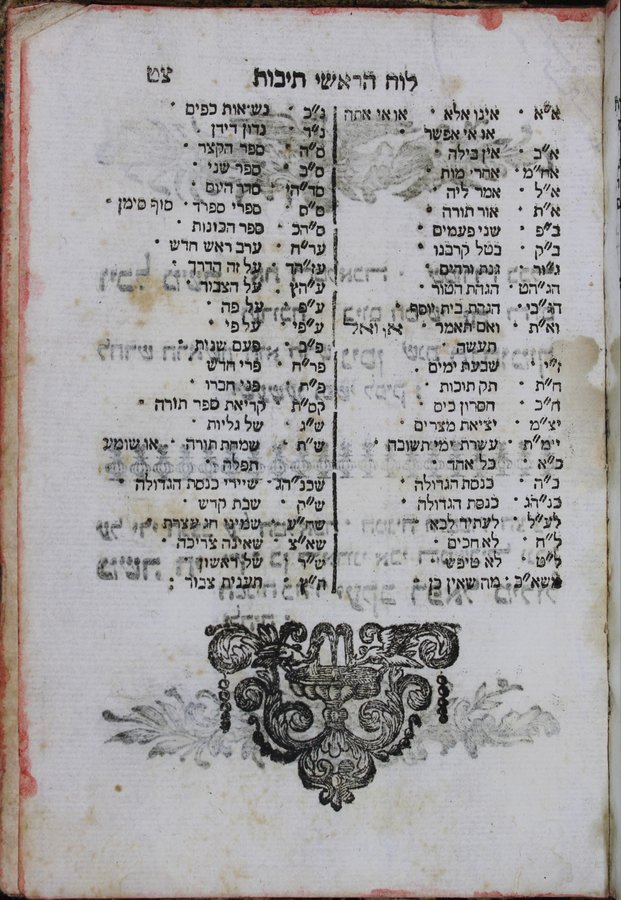 לוח הראשי תיבות
צט
א״א · אינו אלא · או אי אתה
או אי אפשר ·
א״ב · אין בילה ·
אח״מ · אחרי מות ·
א״ל · אמר ליה ·
א״ת · אור תורה ·
ב״פ · שני פעמים ·
ב״ק · בטל קרבנו ·
גנת ורדים ·
הג״הט · הגהת הטור ·
הג״בי · הגהת בית יוסף ·
וא״ת · ואם תאמר · או ואל
תעשב ·
ז״י · שבעת ימים ·
ח״ת · תק תוכות ·
ח״כ · חסרון כיס ·
יצ״מ · יציאת מצרים ·
יימ״ת · עשרת ימי תשובה ·
כ״א · כל אחד ·
כ״ה · כנסת הגדולה ·
כנ״הג · כנסת הגדולה ·
לע״ל · לעתיד לבא ·
ל״ח · לא חכים ·
ל״ט · לא טיפש ·
משא״כ · מה שאין כן ·
נ״כ · נשיאות כפים ·
נ״ד · נדון דידן ·
ס״ה · ספר הקצר ·
ס״ב · ספר שני ·
סד״הי · סדר היום ·
ס״ס · ספרי ספרד · סוף סימן ·
ס״הכ · ספר הכונות ·
ער״ח · ערב ראש חדש ·
עז״הד · על זה הדרך ·
ע״הץ · על הצבור ·
ע״פ · על פה ·
ע״פי · על פי ·
פ״כ · פעם שנות ·
פר״ח · פרי חדש ·
פ״ח · פני חברו ·
קס״ת · קריאת ספר תורה ·
ש״ג · של גליות ·
ש״ת · שמחת תורה · או שומע
תפלה ·
שכנ״הג · שיירי כנסת הגדולה ·
ש״ק · שבת קדש ·
שח״ע · שמיני חג עצרת ·
שא״צ · שאינה צריכה ·
ש״ר · של ראשון ·
ת״ץ · תענית צבור :